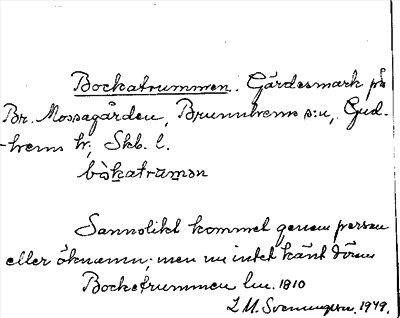 Bockatrummen. Gärdesmark på
Br. Mossagården, Brunnhems s:n, Gud-
-hems hr, Skb. l.
bòkatrumən
Sannolikt kommet genom person
eller öknamn; men nu intet känt därom
Bocketrummen lm. 1810
L. M. Svenungsson. 1949.